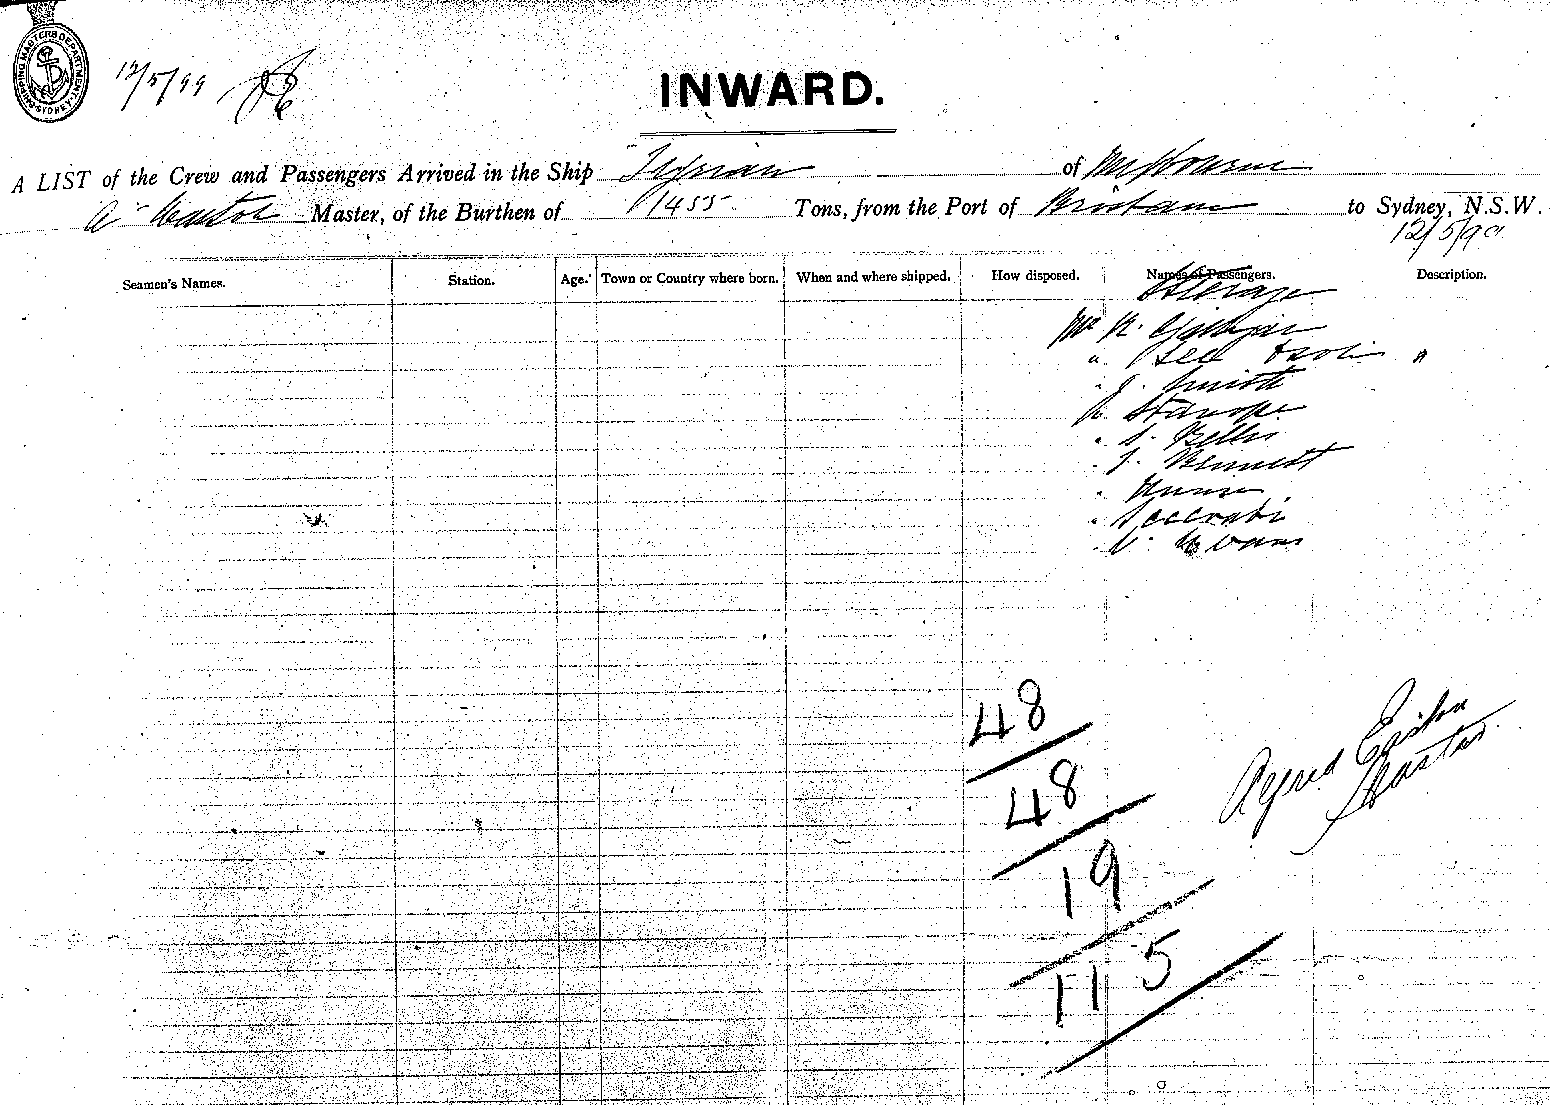 SHIPPING MASTERS DEPARTMENT SYDNEY
12/5/99
INWARD.
A LIST of the Crew and Passengers Arrived in the Ship Tyrian of Melbourne
A Master, of the Burthen of 1455 Tons, from the Port of Brisbane to Sydney, N.S.W.
12/5/99
Seamen's Names. Station. Age. Town or Country where born. When and where shipped. How disposed. Names of Passengers. Description.
Steerage
Mr
"
" J. Smith
Stanope
" S.
" J. Bennett
" Nunn
"
Evans
48
48
19
115
Alfred
Master